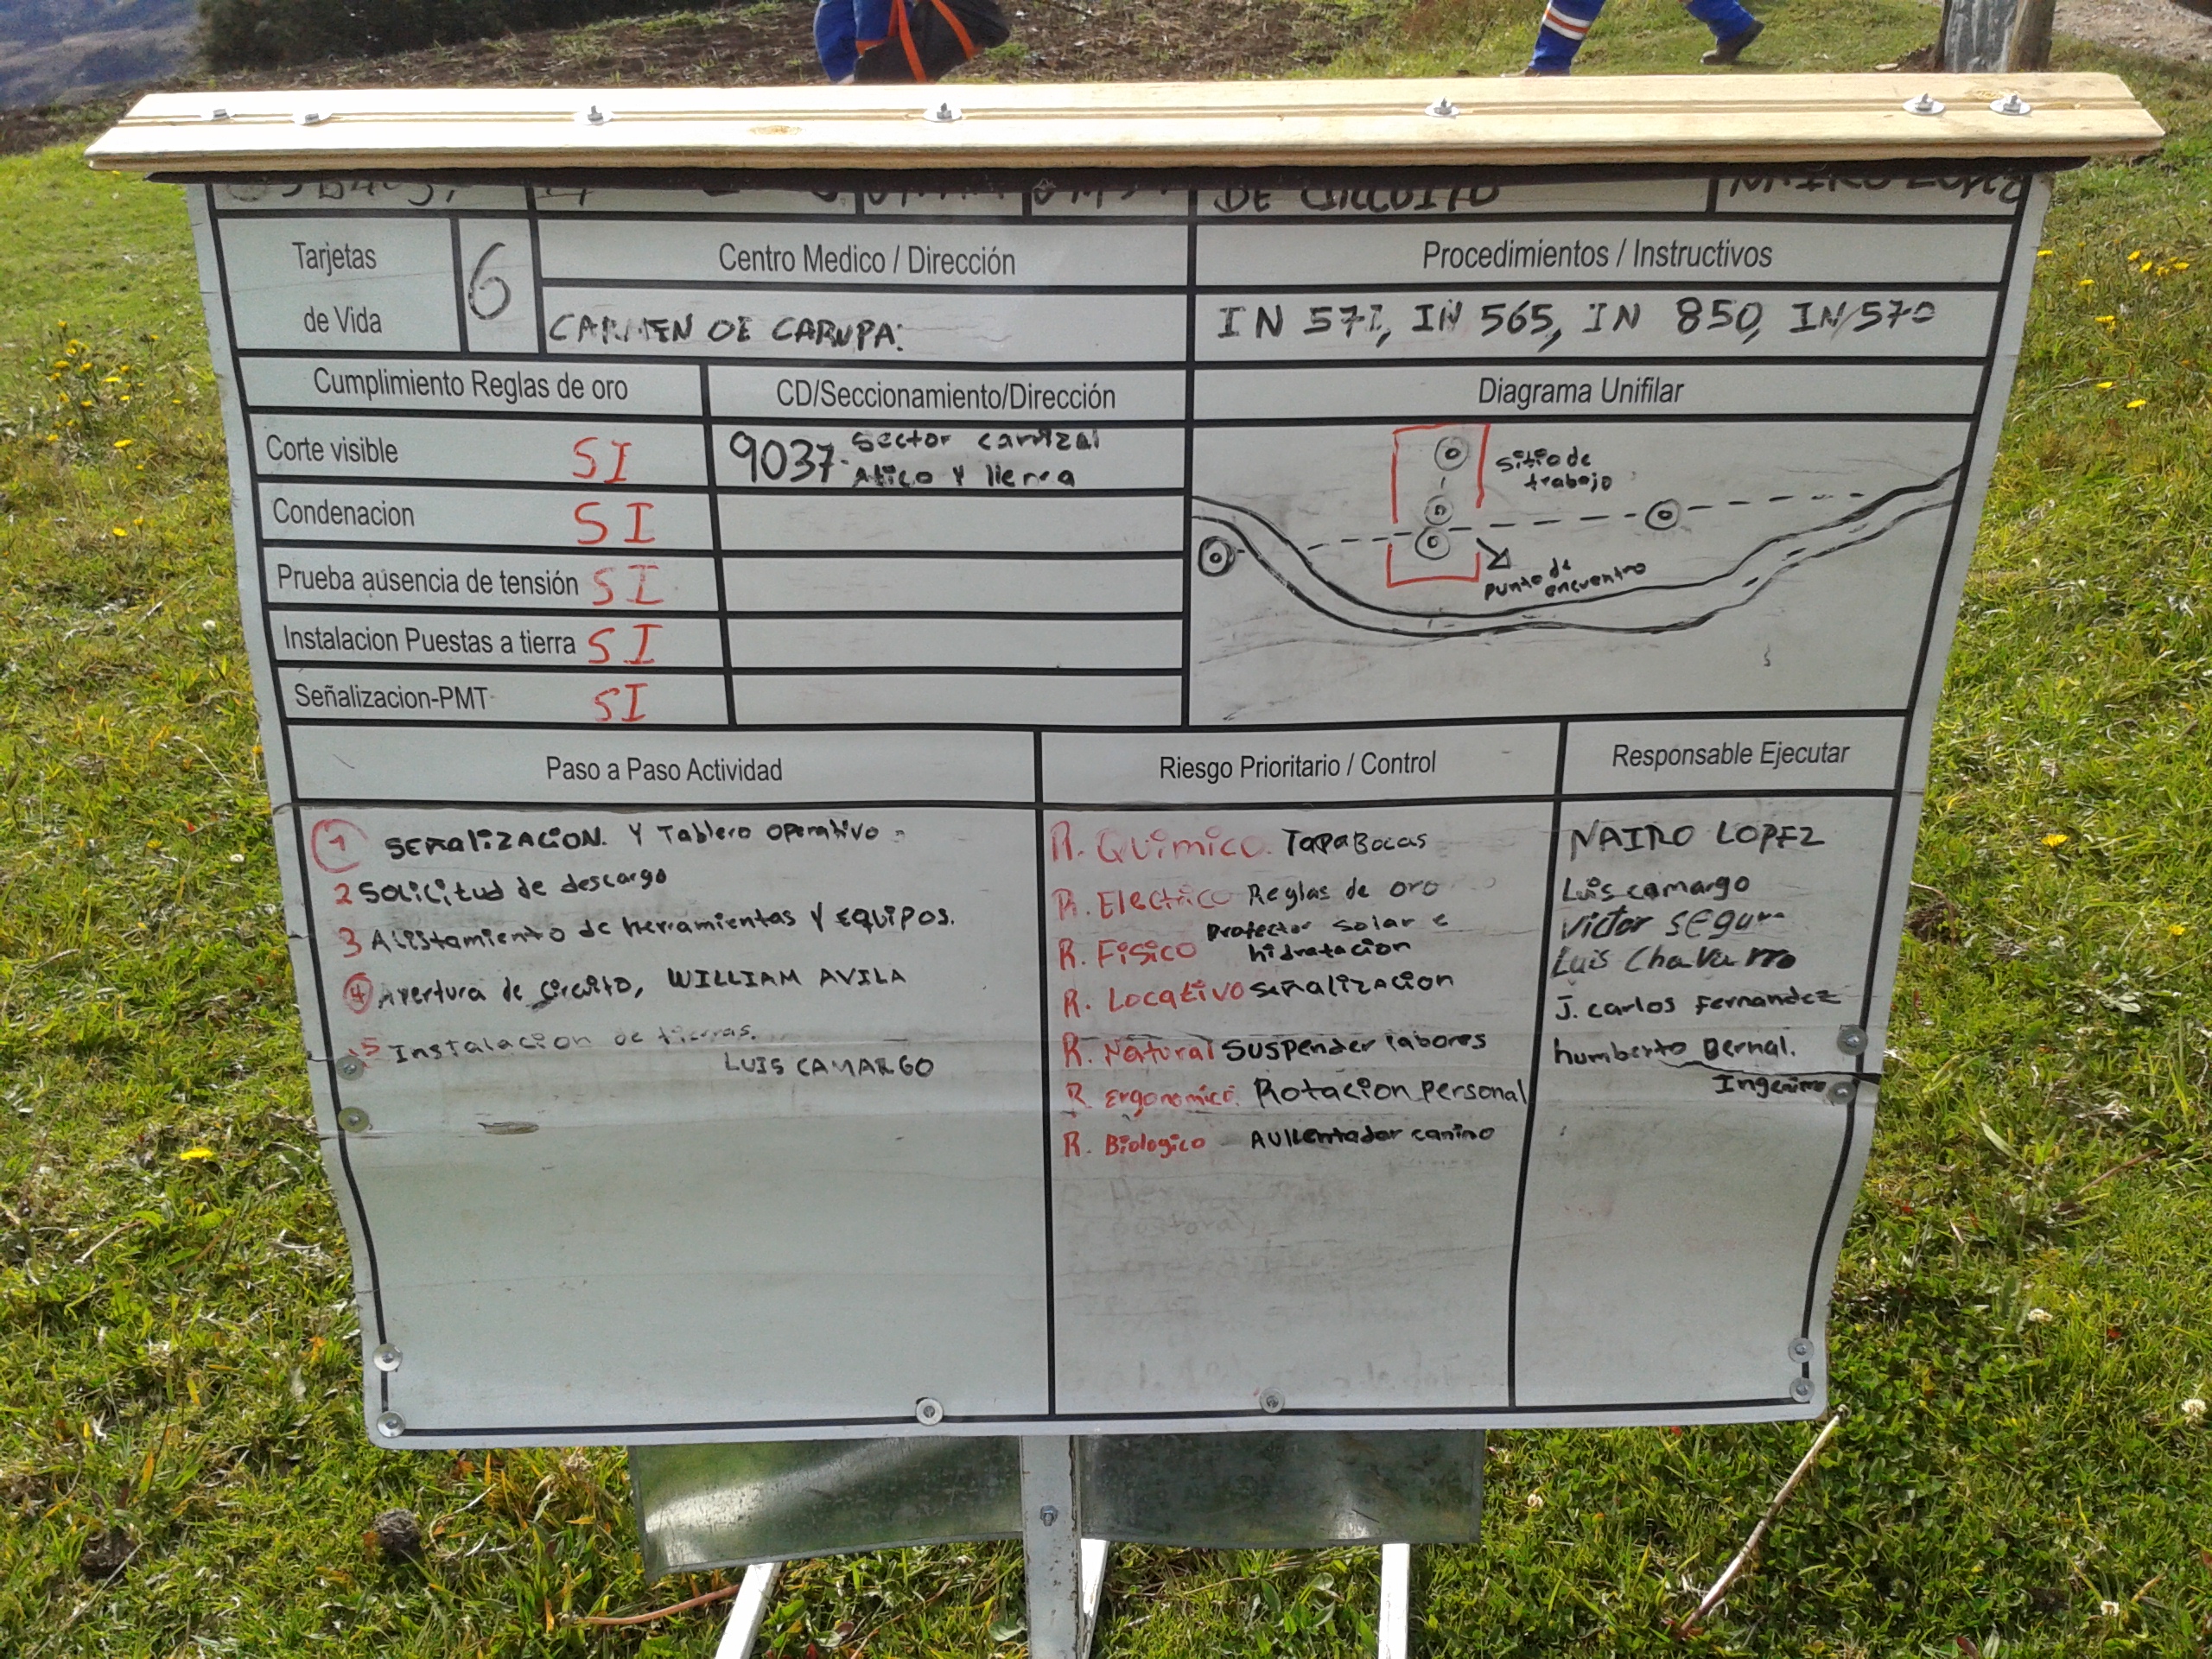 DE CIRCUITO
NAIRO LOPEZ
Tarjetas
de Vida
6
Centro Medico / Dirección
CARMEN DE CARUPA.
Procedimientos / Instructivos
IN 571, IN 565, IN 850, IN 570
Cumplimiento Reglas de oro
CD/Seccionamiento/Dirección
Diagrama Unifilar
Corte visible SI
9037- Sector carrizal
Atico Y
Condenacion SI
Prueba ausencia de tensión SI
Instalacion Puestas a tierra SI
Señalizacion-PMT SI
Sitio de
trabajo
punto de
encuentro
Paso a Paso Actividad
Riesgo Prioritario / Control
Responsable Ejecutar
1 SEñaliZACiON. Y Tablero Operativo
2 Solicitud de descargo
3 Alistamiento de herramientas Y EQUIPOS.
4 Apertura de circuito, WILLIAM AVILA
5 Instalacion de tierras.
LUIS CAMARGO
R. Quimico. TapaBocas
R. Electrico Reglas de oro
R. Fisico Protector Solar e
hidratacion
R. Locativo SEñALIZACION
R. Natural Suspender labores
R ergonomico. Rotacion personal
R. Biologico AUllentador canino
NAIRO LOPEZ
Luis camargo
Victor SEgura
Luis Chavarro
J. carlos Fernandez
humberto Bernal.
Ingeniero